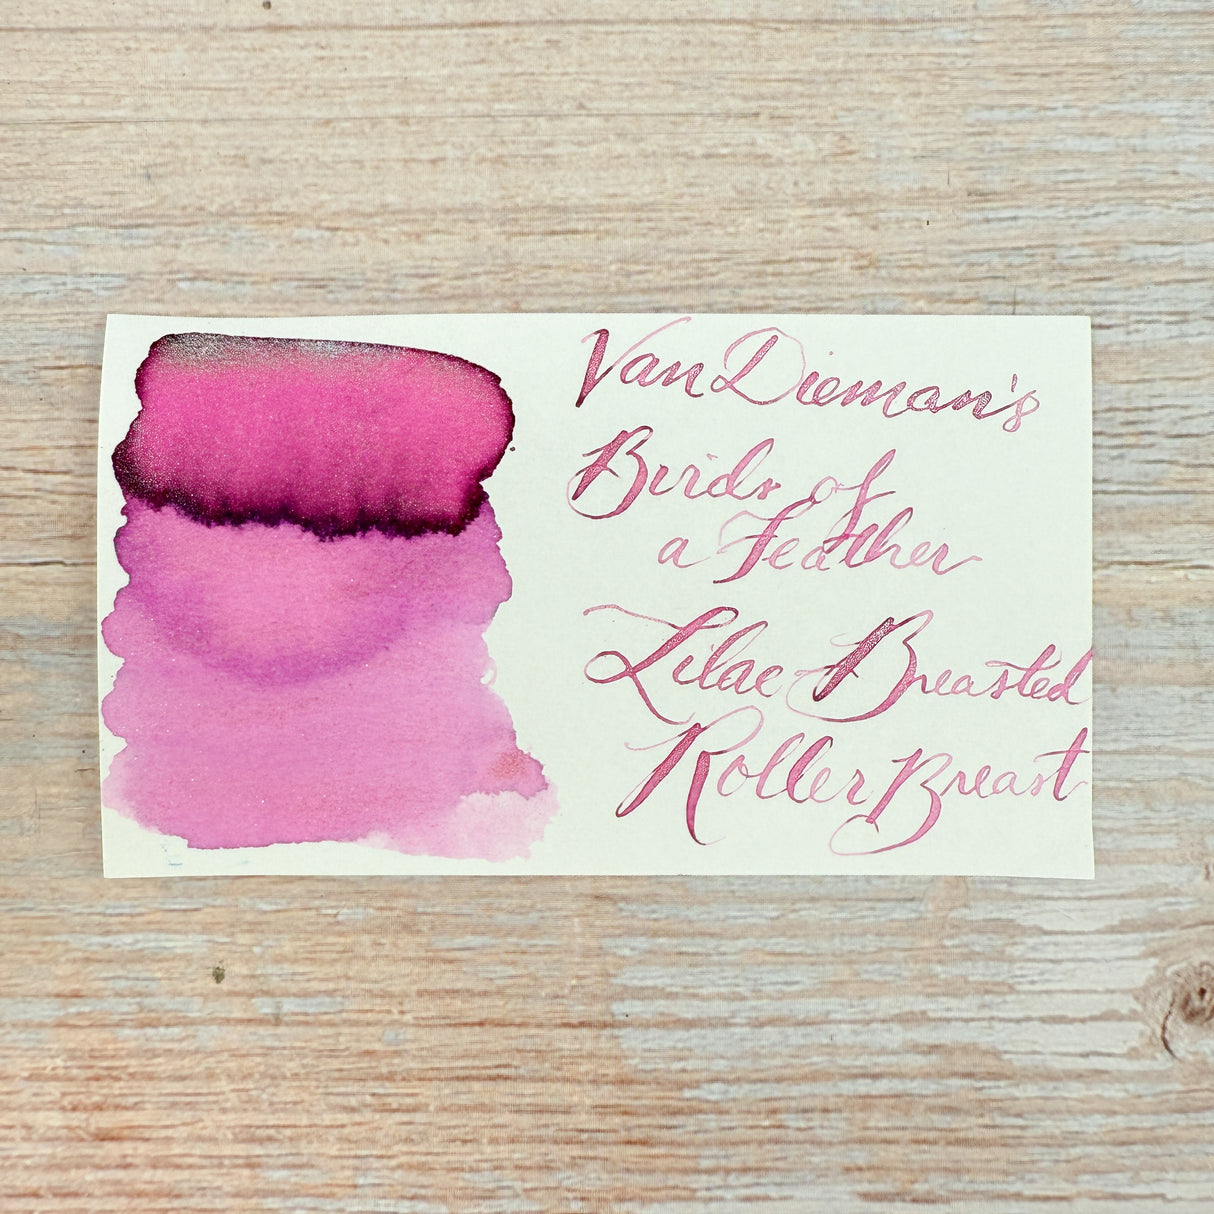 Van Dieman's
Birds of
a Feather
Lilac-Breasted
Roller Breast